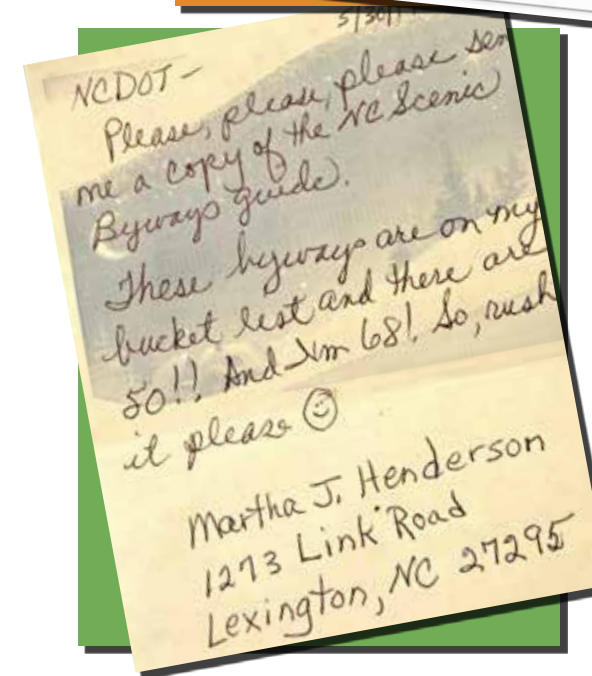 5/30/
NCDOT-
Please, please, please sen
me a copy of the NC Scenic
Byways guide.
These byways are on my
bucket list and there are
50!! And I'm 68! So, rush
it please ☺
Martha J. Henderson
1273 Link Road
Lexington, NC 27295